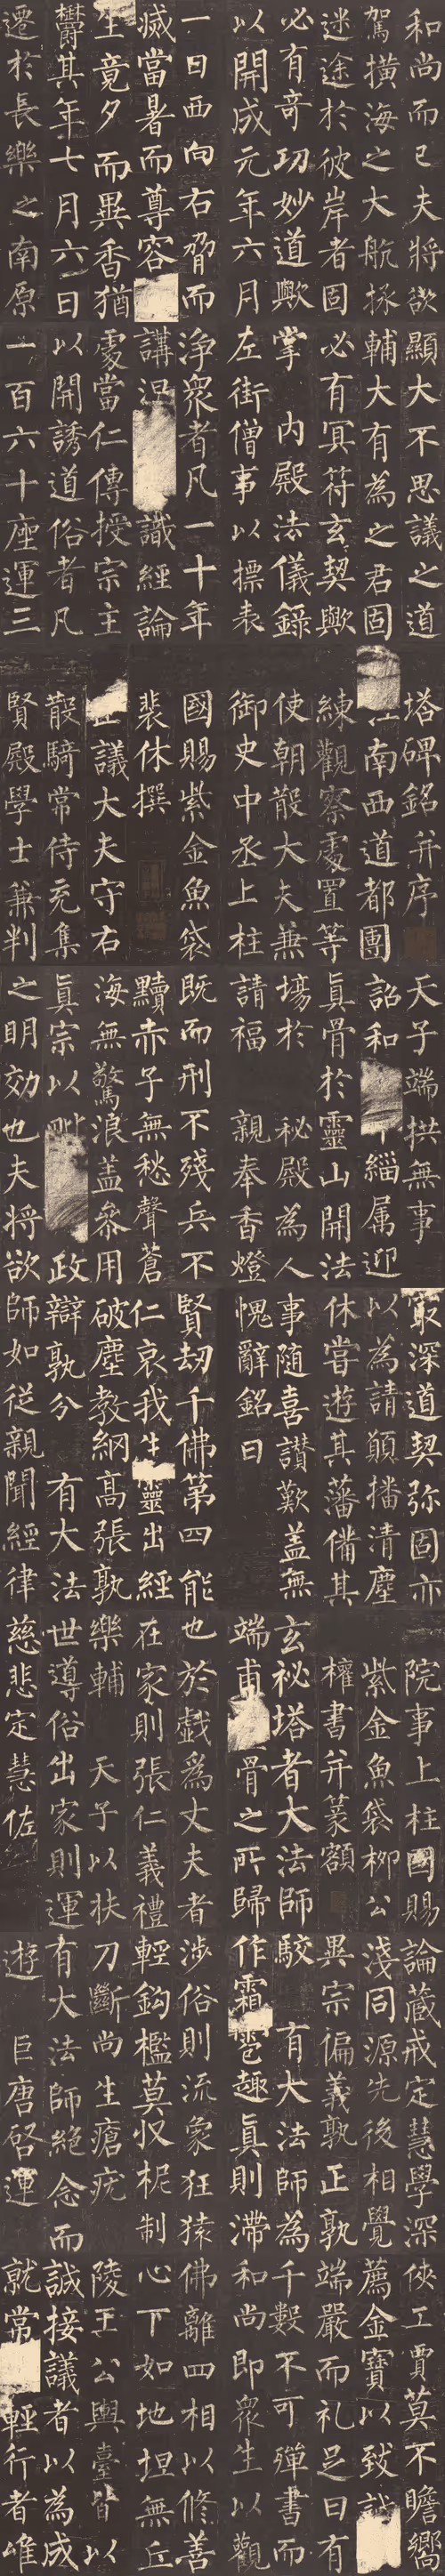 和尚而已夫將欲
駕橫海之大航拯
迷途於彼岸者固
必有奇功妙道歟
以開成元年六月
一日西向右脅而
滅當暑而尊容
生竟夕而異香猶
鬱其年七月六日
遷於長樂之南原
顯大不思議之道
輔大有為之君固
必有冥符玄契歟
掌 內殿法儀錄
左街僧事以標表
淨衆者凡一十年
講涅 識經論
處當仁傳授宗主
以開誘道俗者凡
一百六十座運三
塔碑銘并序
江南西道都團
練觀察處置等
使朝散大夫兼
御史中丞上柱
國賜紫金魚袋
裴休撰
正議大夫守右
散騎常侍充集
賢殿學士兼判
天子端拱無事
詔和 緇属迎
真骨於靈山開法
場於 秘殿為人
請福 親奉香燈
既而刑不殘兵不
黷赤子無愁聲蒼
海無驚浪盖叅用
真宗以毗 政
之明効也夫將欲
取深道契弥固亦
以為請願播清塵
休嘗遊其藩備其
事隨喜讚歎盖無
愧辭銘曰
賢劫千佛第四能
仁哀我生靈出經
破塵教綱高張孰
辯孰分 有大法
師如從親聞經律
院事上柱國賜
紫金魚袋柳公
權書并篆額
玄秘塔者大法師
端甫 骨之所歸
也於戲為丈夫者
在家則張仁義禮
樂輔 天子以扶
世導俗出家則運
慈悲定慧佐
論藏戒定慧學深
淺同源先後相覺
異宗偏義孰正孰
駮 有大法師為
作霜雹趣真則滯
涉俗則流象狂猿
輕鈎檻莫收柅制
刀斷尚生瘡疣
有大法師絕念而
遊 巨唐啓運
俠工賈莫不瞻嚮
薦金寶以致誠
端嚴而礼足日有
千數不可殫書而
和尚即衆生以觀
佛離四相以修善
心下如地坦無丘
陵王公輿臺皆以
誠接議者以為成
就常 輕行者唯